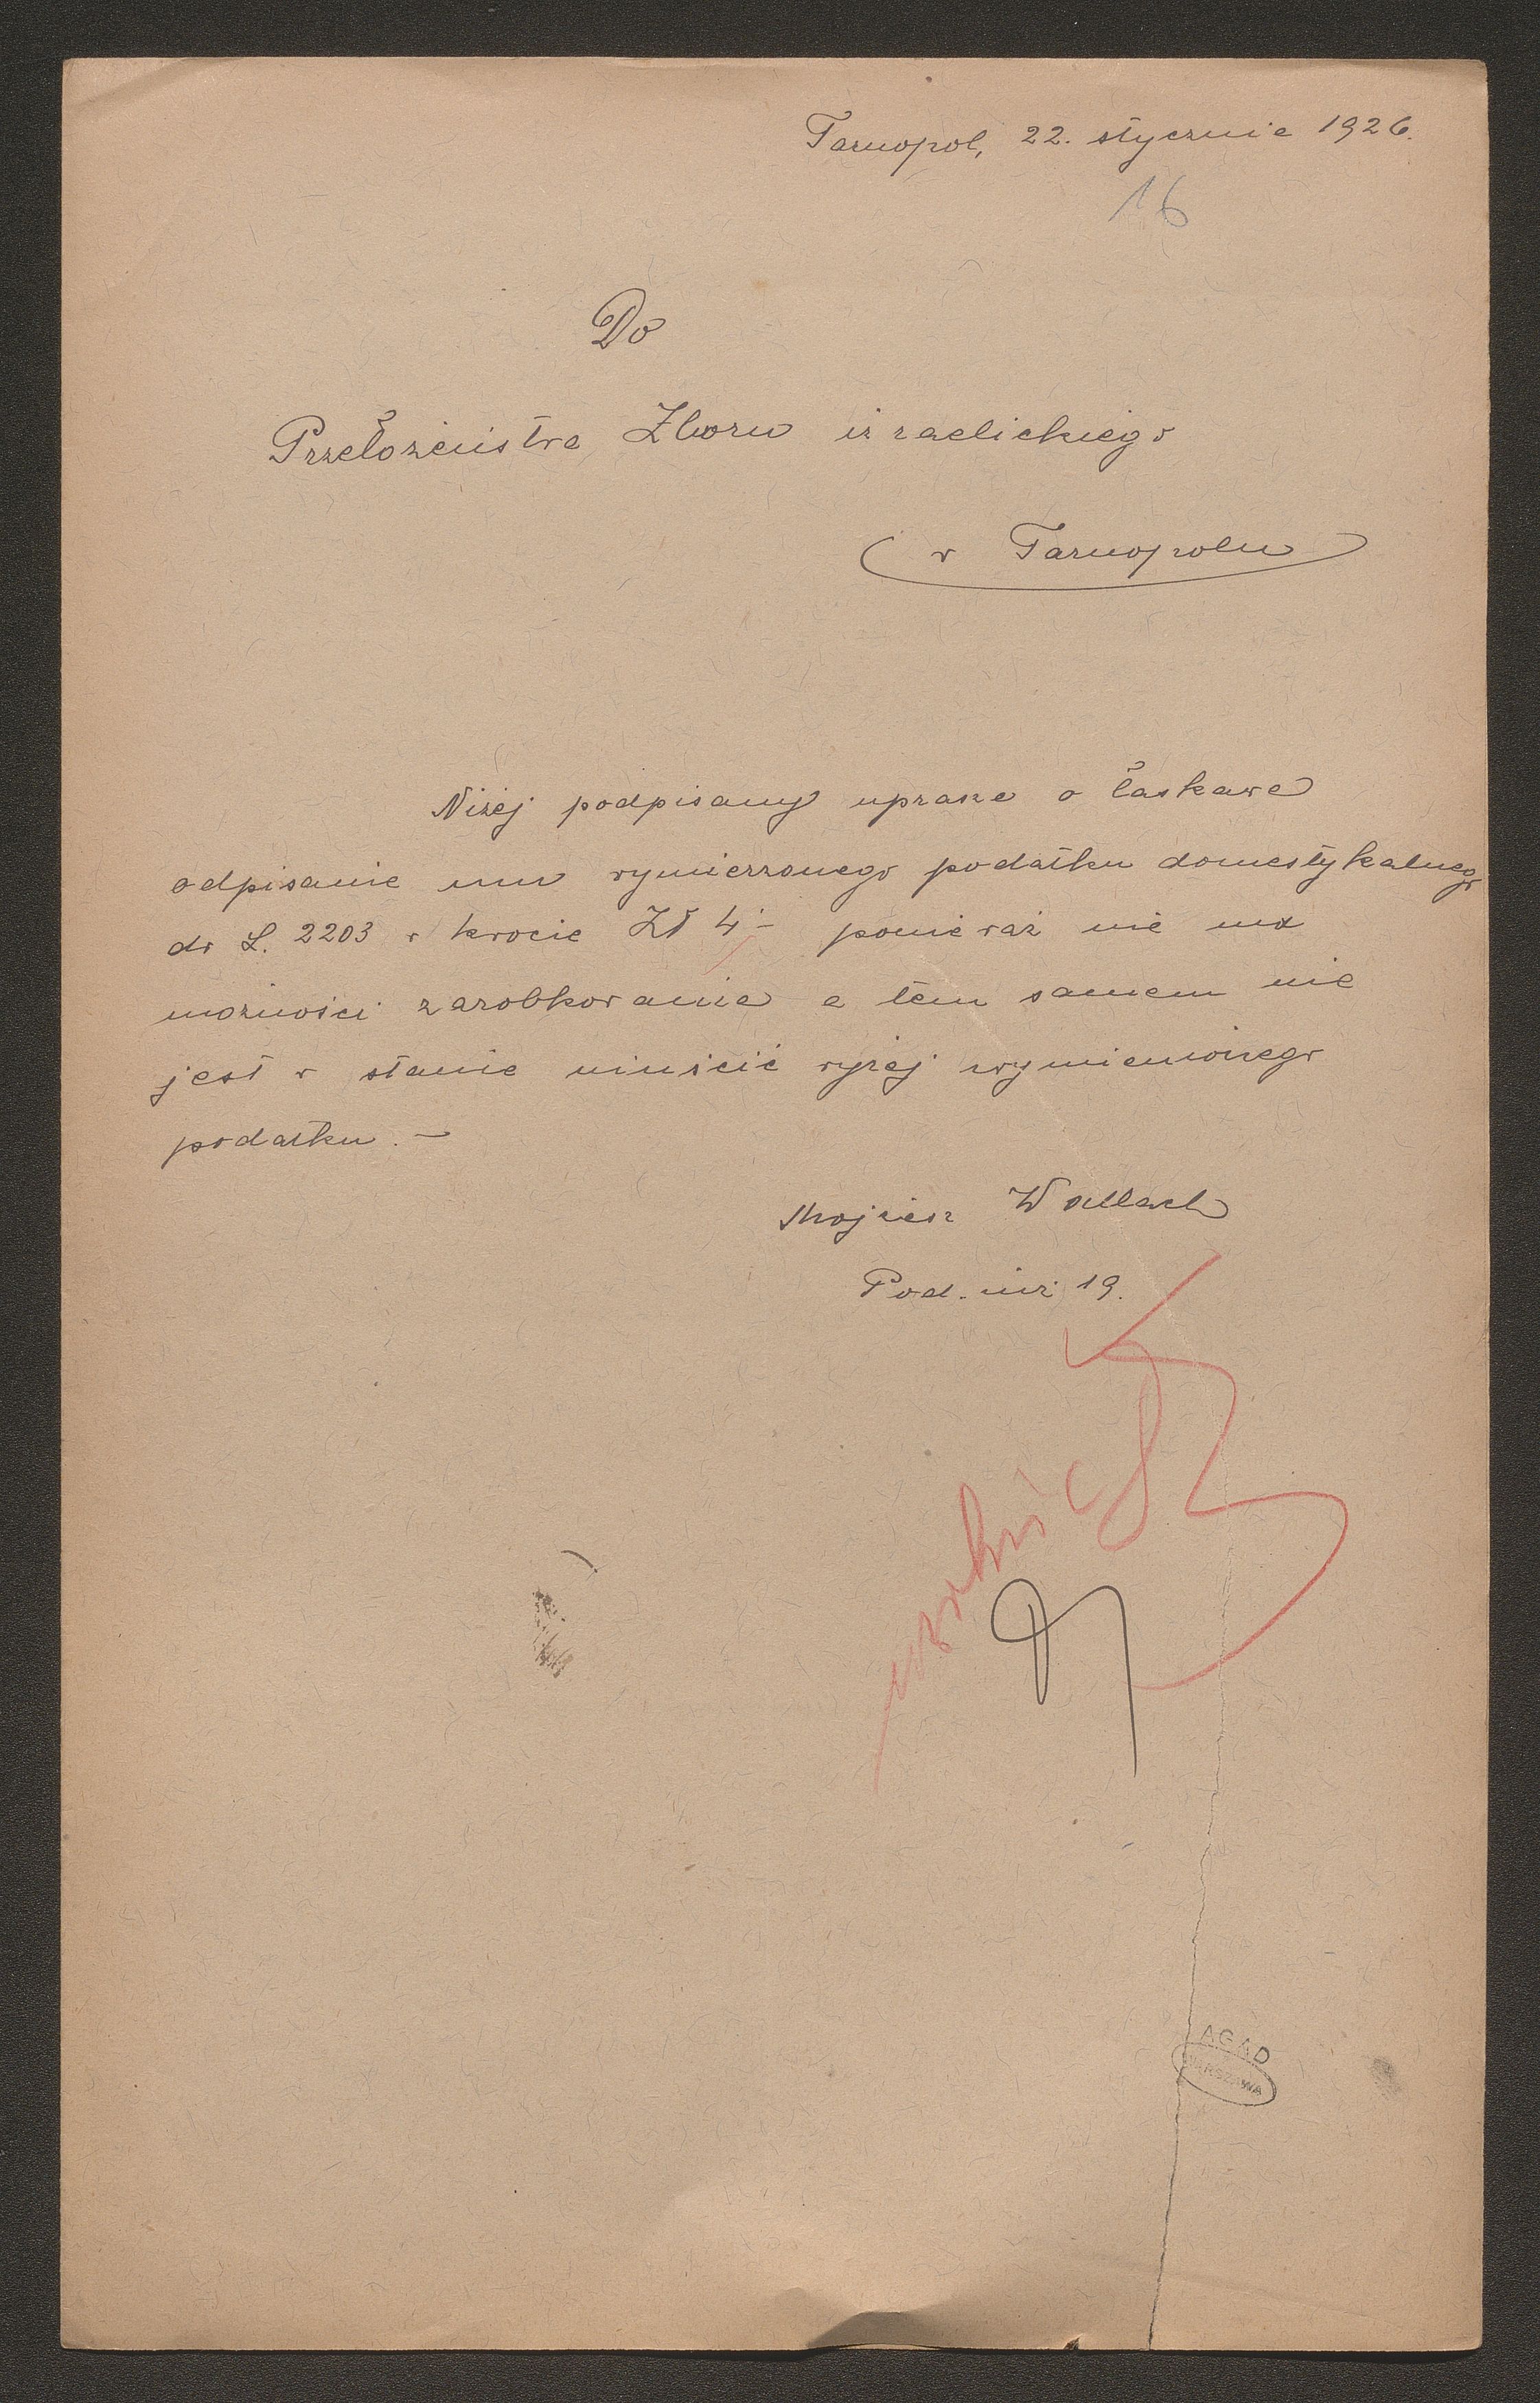 Tarnopol, 22. stycznia 1926.
16
Do
Przełożeństwa Zboru izraelickiego
w Tarnopolu
Niżej podpisany uprasza o łaskawe
odpisanie mu wymierzonego podatku domestykalnego
do L. 2203 w kwocie Zł 4.– ponieważ nie ma
możności zarobkowania a tem samem nie
jest w stanie uiuścić wyżej wymienionego
podatku. –
Mojżesz Wallach
Pod. niż 19.
AGAD
WARSZAWA